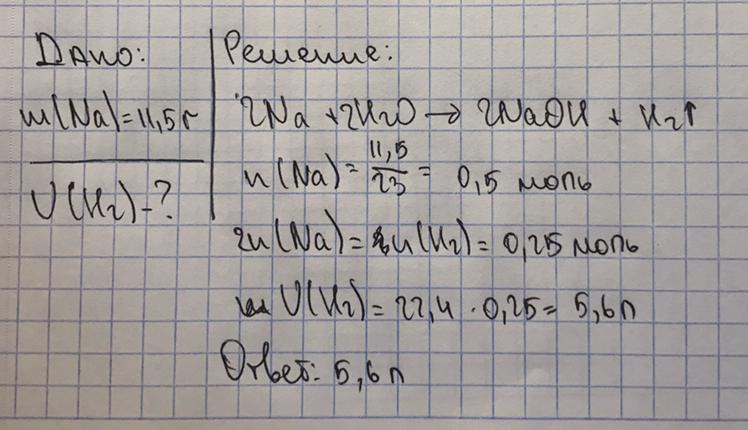 Дано:
m(Na)=11,5г
V(H₂)-?
Решение:
2Na + 2H₂O → 2NaOH + H₂↑
n(Na)= 11,5/23 = 0,5 моль
2n(Na)= n(H₂)= 0,25 моль
V(H₂)= 22,4 · 0,25= 5,6л
Ответ: 5,6л